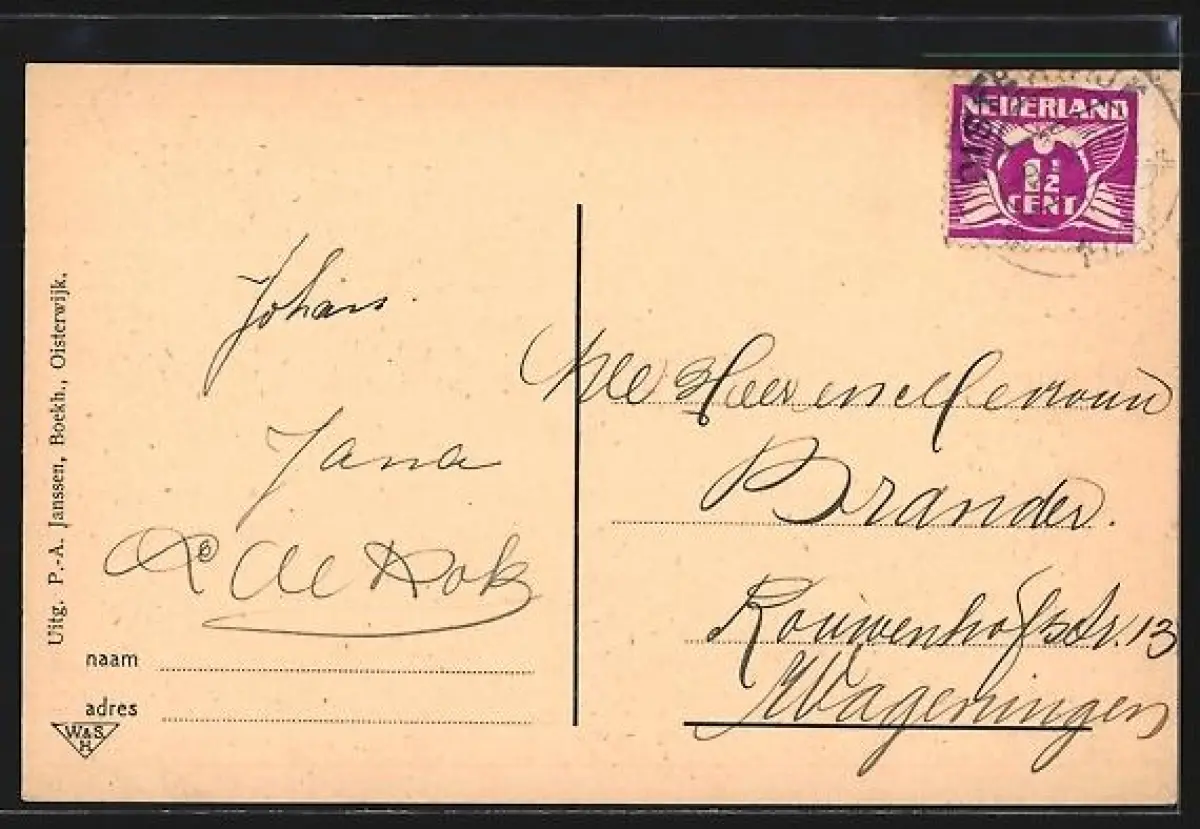 NEDERLAND
1½
CENT
Johan.
Jana
de Kok
Heer en Mevrouw
Brander.
Rouwenhofstr. 13
Wageningen
Uitg. P.-A. Janssen, Boekh., Oisterwijk.
naam
adres
W&S
H